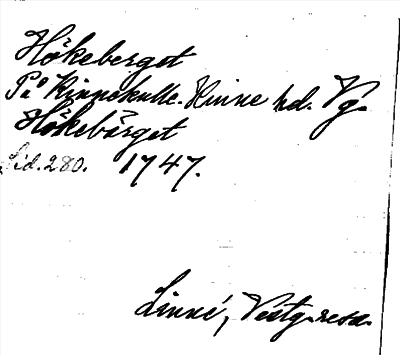 Hökeberget
På Kinnekulle. Kinne hd. Vg.
Hökebärget
Sid. 280. 1747.
Linné, Vestg.resa.